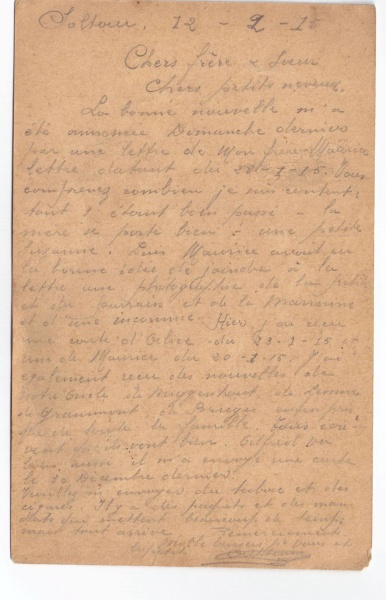 Soltau, 12 - 2 - 15
Chers frère & Sœur
Chers petits neveux.
La bonne nouvelle m'a
été annoncée Dimanche dernier
par une lettre de Mon frère Maurice
lettre datant du 28-1-15. Vous
comprenez combien je suis content,
tout s'étant bien passé - la
mère se porte bien - une petite
Suzanne. Puis Maurice avait eu
la bonne idée de joindre à la
lettre une photographie de la petite
et du parrain et de la Marraine
et d'une inconnue. Hier j'ai reçu
une carte d' du 23-1-15 et
une de Maurice du 20-1-15. J'ai
également reçu des nouvelles de
notre Oncle de Buggenhout, de
de Grammont, de Bruges enfin pres
que de toute la famille. Tous
vent qu'ils vont bien. Alfred va
bien aussi il m'a envoyé une carte
le 30 Décembre dernier.
Veuillez m'envoyer du tabac et des
cigares. Il y a des paquets et des man
dats qui mettent beaucoup de temps
mais tout arrive. Remerciements
Mille baisers à Vous et